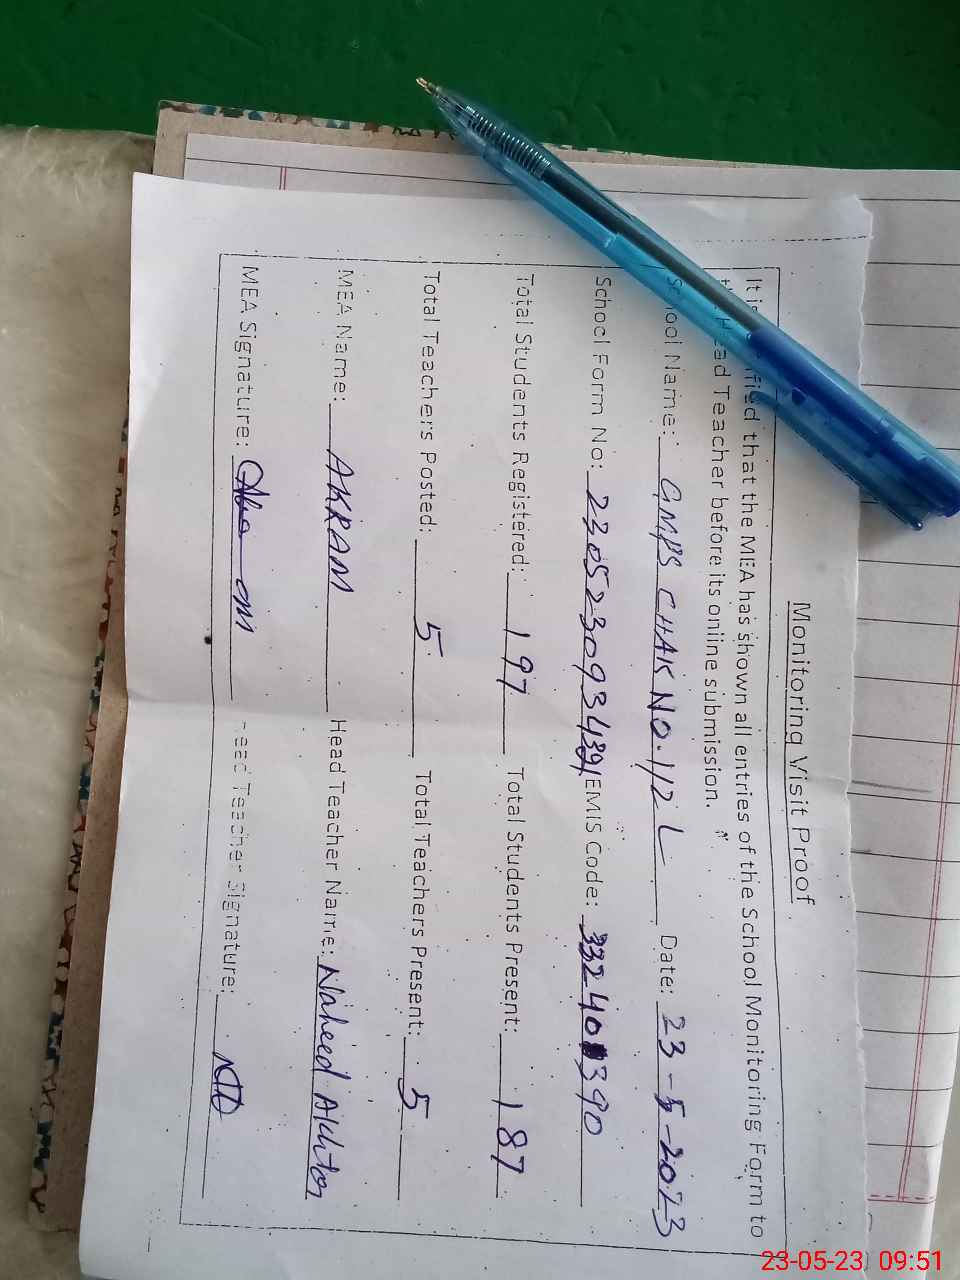 Monitoring Visit Proof
It is that the MEA has shown all entries of the School Monitoring Form to
Head Teacher before its online submission.
School Name: GMPS CHAK NO.1/2L Date: 23-5-2023
School Form No: EMIS Code:
Total Students Registered: 197 Total Students Present: 187
Total Teachers Posted: 5 Total Teachers Present: 5
MEA Name: AKRAM Head Teacher Name: Naheed Akhtar
MEA Signature: Head Teacher Signature:
23-05-23 09:51